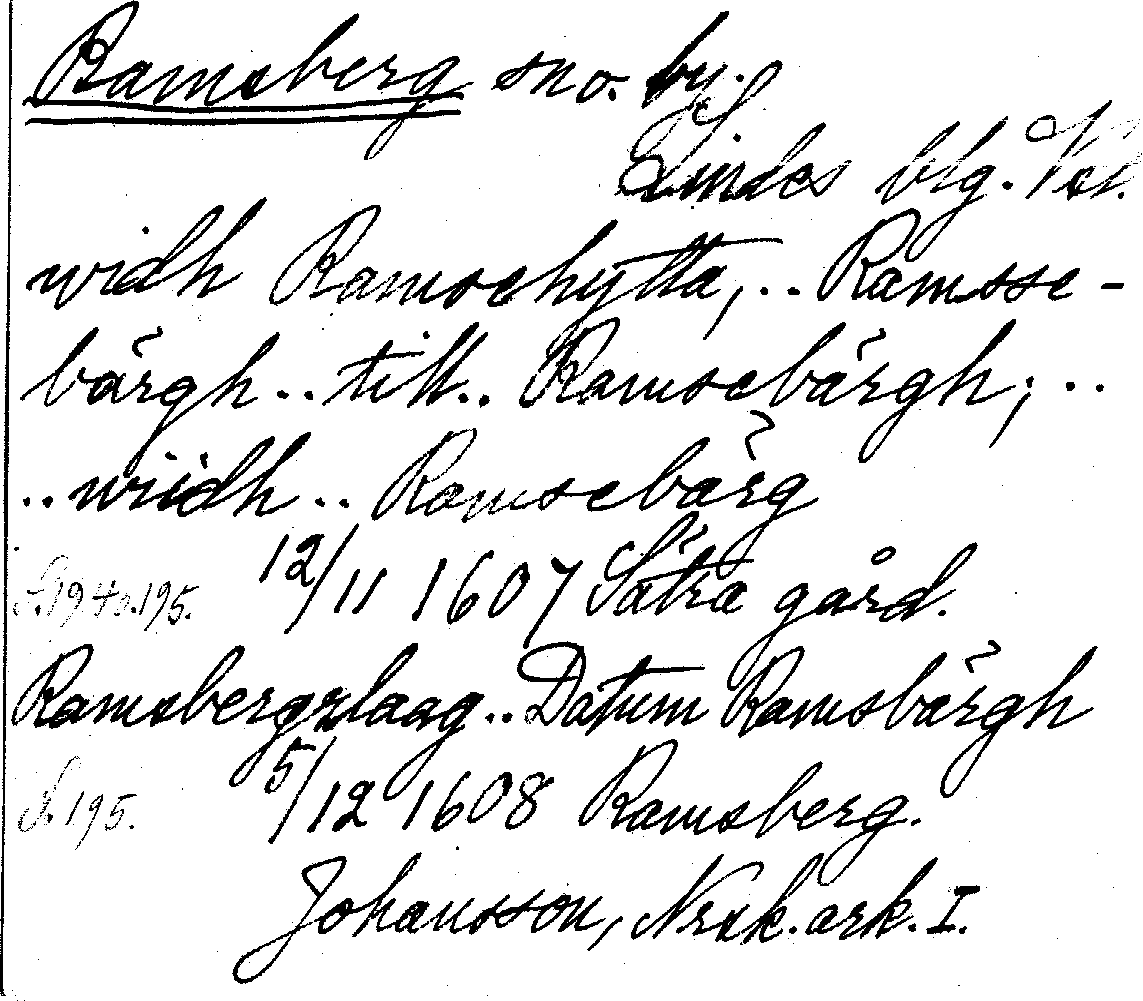 Ramsberg sno. by.
Lindes blg. Vstl.
widh Ramsehytta, .. Ramsse-
bärgh .. till .. Ramsebärgh; ..
.. wiidh .. Ramsebärg
S. 194 o. 195. 12/11 1607 Sätra gård.
Ramsbergzlaag .. Datum Ramsbärgh
S. 195. 5/12 1608 Ramsberg.
Johansson, Nrsk. ark. I.